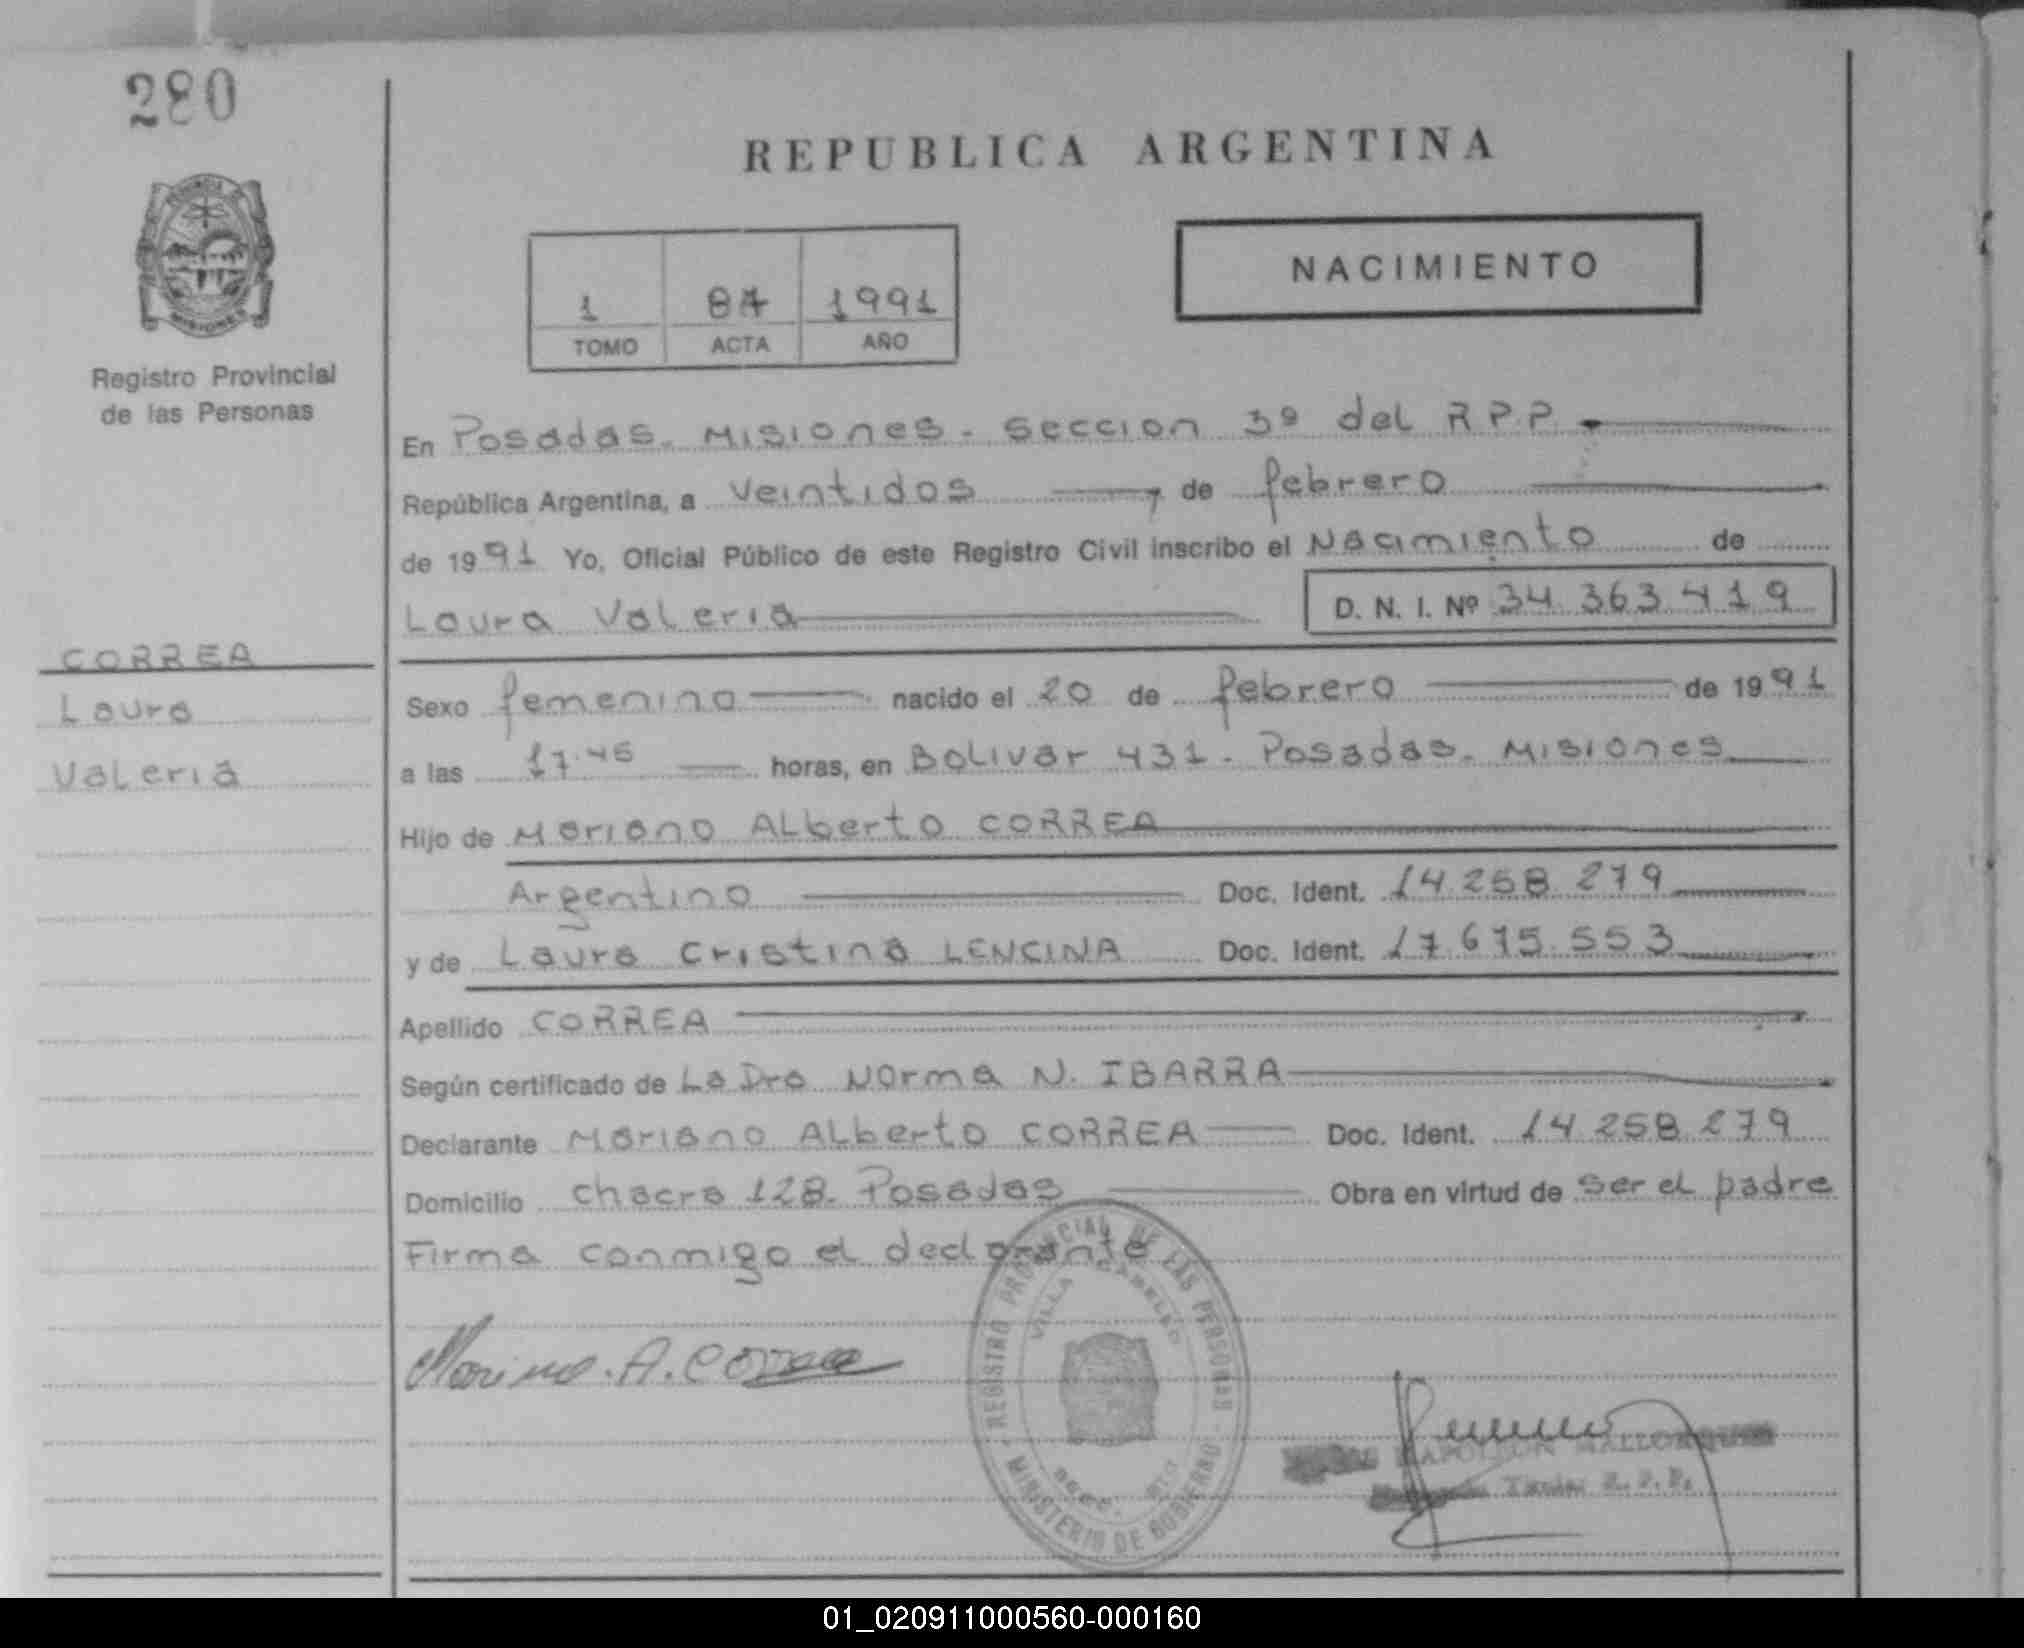 280
PROVINCIA DE
MISIONES
Registro Provincial
de las Personas
REPUBLICA ARGENTINA
NACIMIENTO
1 84 1991
TOMO ACTA AÑO
En Posadas. Misiones. Seccion 3º del R P P.
República Argentina, a veintidos de febrero
de 1991 Yo, Oficial Público de este Registro Civil inscribo el Nacimiento de
Laura Valeria D. N. I. Nº 34.363.419
CORREA
Laura
Valeria
Sexo femenino nacido el 20 de febrero de 1991
a las 17.45 horas, en Bolivar 431. Posadas. Misiones
Hijo de Mariano Alberto CORREA
Argentino Doc. Ident. 14.258.279
y de Laura Cristina LENCINA Doc. Ident. 17.675.553
Apellido CORREA
Según certificado de La Dra Norma N. IBARRA
Declarante Mariano Alberto CORREA Doc. Ident. 14.258.279
Domicilio chacra 128. Posadas Obra en virtud de ser el padre
Firma conmigo el declarante
REGISTRO PROVINCIAL DE LAS PERSONAS
VILLA CABELLO
MINISTERIO DE GOBIERNO
Mariano. A. Correa
NAPOLEON
01_020911000560-000160